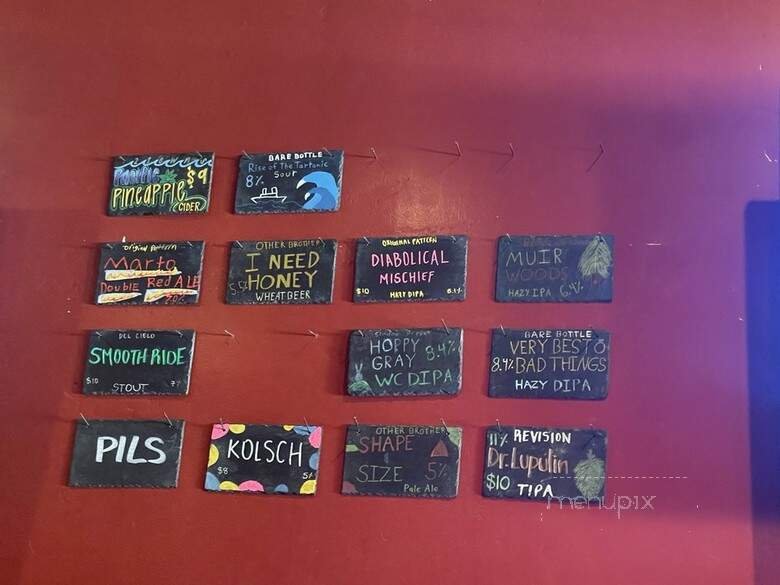 Pacific
Pineapple
$9
CIDER
BARE BOTTLE
Rise of The Tartonic
Sour
8%
Original Pattern
Marta
Double Red ALE
OTHER BROTHER
I NEED
HONEY
WHEAT BEER
ORIGINAL PATTERN
DIABOLICAL
MISCHIEF
$10
HAZY DIPA
MUIR
WOODS
HAZY IPA 6.4%
DEL CIELO
SMOOTH RIDE
$10
STOUT
7%
HOPPY
GRAY
8.4%
WC DIPA
BARE BOTTLE
VERY BEST OF
8.4% BAD THINGS
HAZY DIPA
PILS
KOLSCH
$8
5%
OTHER BROTHER
SHAPE
SIZE
5%
Pale Ale
11% REVISION
Dr. Lupulin
$10
TIPA
menupix